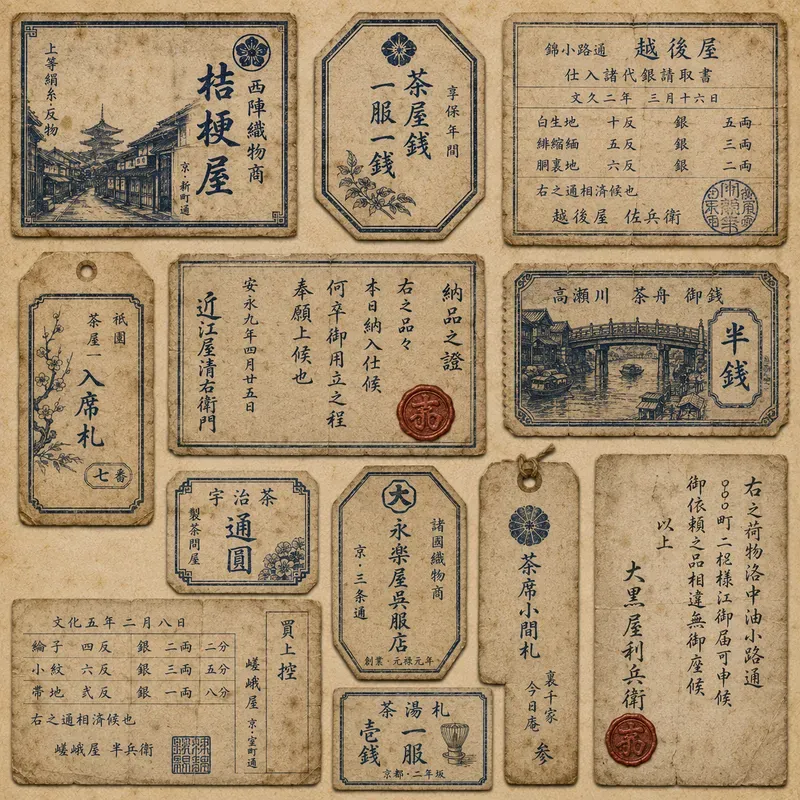 西陣織物商
桔梗屋
京・新町通
上等絹糸・反物
享保年間
茶屋銭
一服一銭
錦小路通 越後屋
仕入諸代銀請取書
文久二年 三月十六日
白生地 十反 銀 五両
緋縮緬 五反 銀 三両
胴裏地 六反 銀 二両
右之通相済候也
越後屋 佐兵衛
祇園
茶屋一
入席札
七番
納品之證
右之品々
本日納入仕候
何卒御用立之程
奉願上候也
安永九年四月廿五日
近江屋清右衛門
高瀬川 茶舟 御銭
半銭
宇治茶
通圓
製茶問屋
大
諸國織物商
永楽屋呉服店
京・三条通
創業・元禄元年
茶席小間札
裏千家
今日庵
参
右之荷物洛中油小路通
町二
様江御届可申候
御依頼之品相違無御座候
以上
大黒屋利兵衛
買上控
嵯峨屋 京・室町通
文化五年二月八日
綸子 四反 銀 二両 二分
小紋 六反 銀 三両 五分
帯地 弐反 銀 一両 八分
右之通相済候也
嵯峨屋 半兵衛
茶湯札
一服
壱銭
京都・二年坂